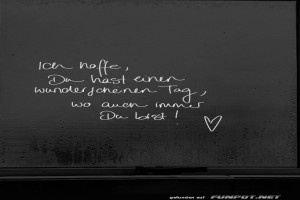 Ich hoffe,
Du hast einen
wunderschönen Tag,
wo auch immer
Du bist!
gefunden auf FUNPOT.NET